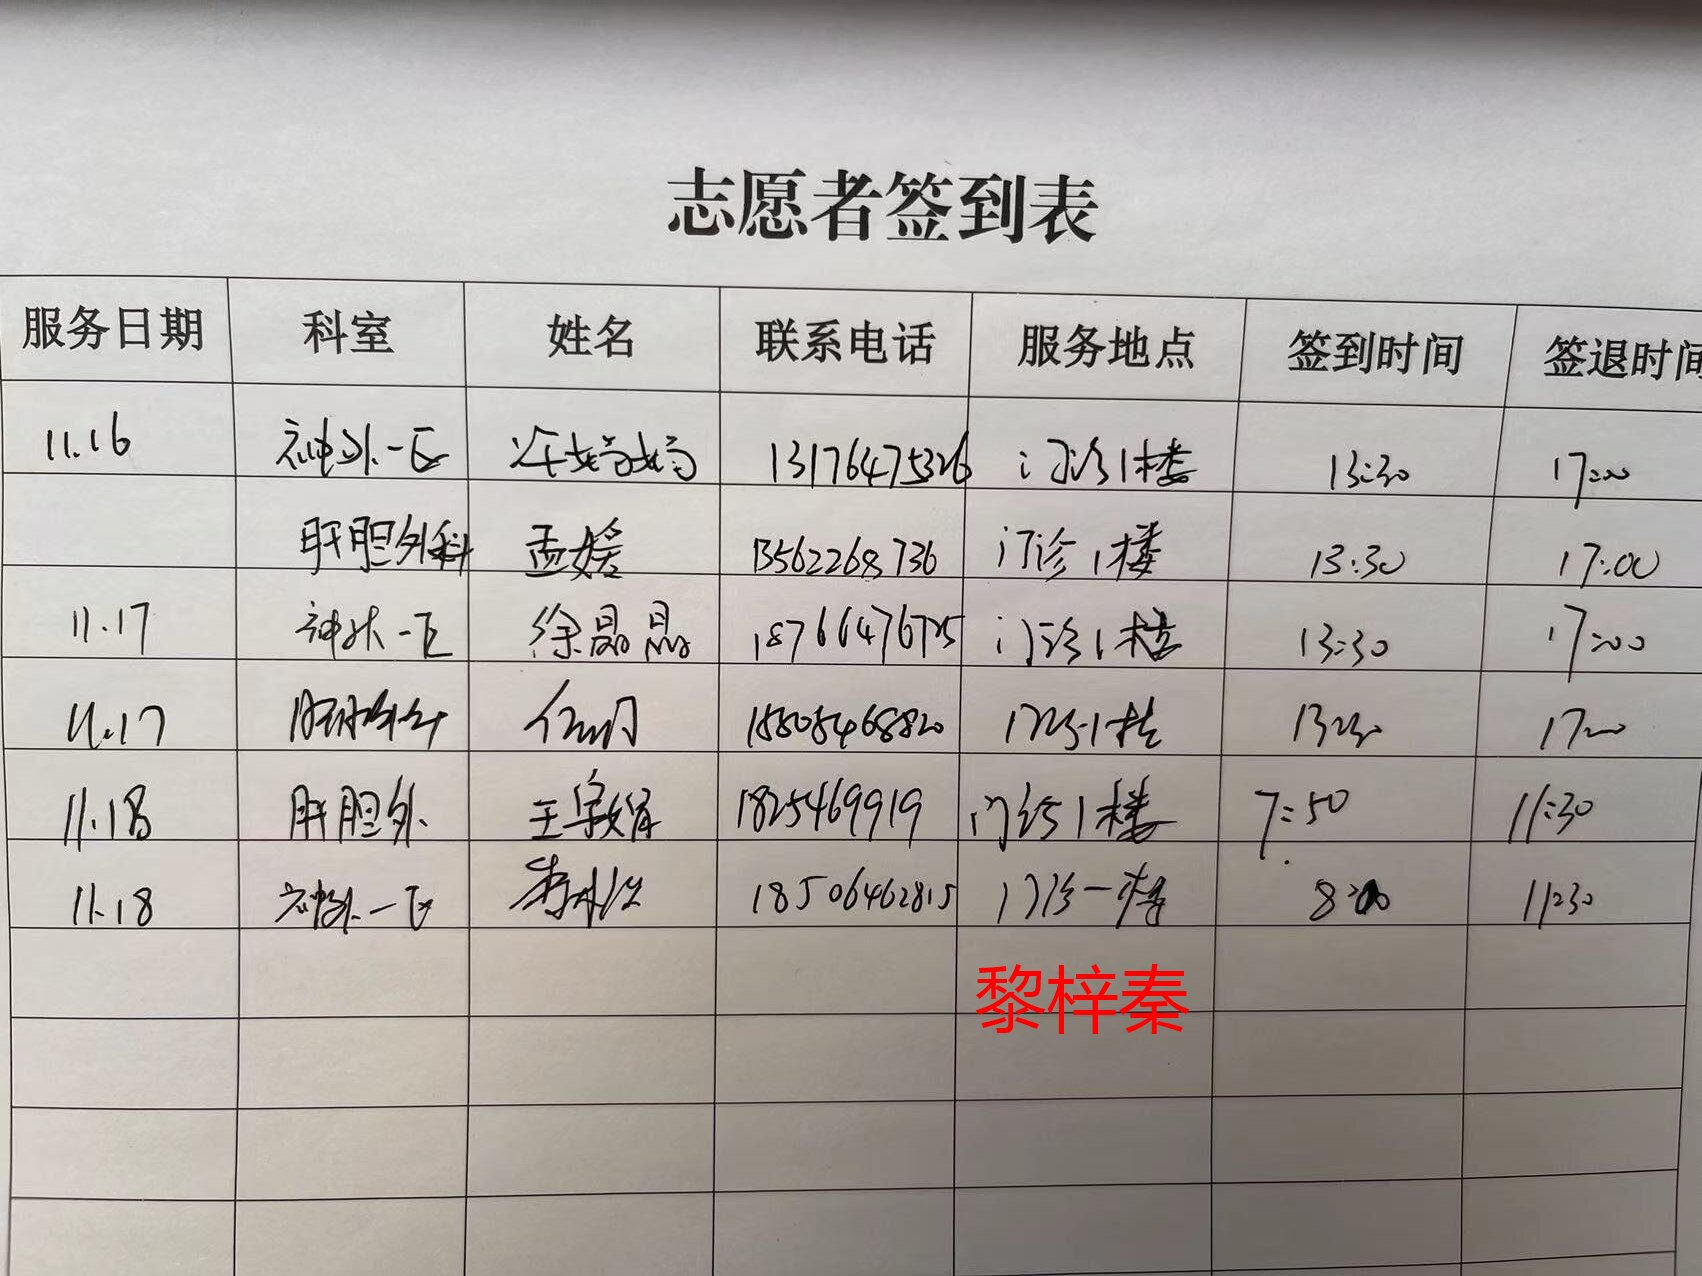 志愿者签到表
服务日期 科室 姓名 联系电话 服务地点 签到时间 签退时间
11.16 神外一区 许娟娟 13176475326 门诊1楼 13:30 17:00
肝胆外科 孟媛 13562268736 门诊1楼 13:30 17:00
11.17 神外一区 徐晶晶 18766476725 门诊1楼 13:30 17:00
11.17 肝胆外科 18805468820 门诊1楼 13:30 17:00
11.18 肝胆外 王 1825469919 门诊1楼 7:50 11:30
11.18 神外一区 18506462815 门诊一楼 8:00 11:30
黎梓秦